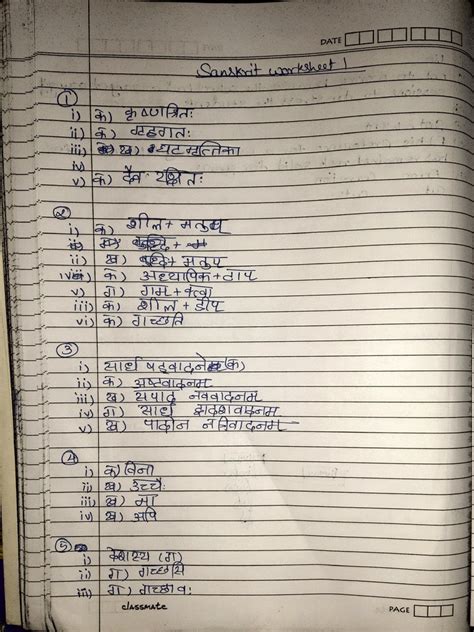 DATE
Sanskrit worksheet 1
①
i) क) कृष्णश्रितः
ii) क)
iii) ख) घटमृत्तिका
iv)
v) क) दैव रक्षितः
②
i) क) शील + मतुप
ii) ख) बुद्धि + मतुप
iv) क) अध्यापिक + टाप
v) ग) गम + क्त्वा
iii) क) शील + डीप
vi) क) गच्छति
③
i) सार्ध षड्वादने क)
ii) क) अष्टवादनम
iii) ख) सपाद नववादनम
iv) ग) सार्ध
v) ख) पादोन
④
i) क) विना
ii) ख) उच्चैः
iii) ख) मा
iv) ख) अपि
⑤
i) (ग)
ii) ग) गच्छसि
iii) ग) गच्छावः
classmate
PAGE